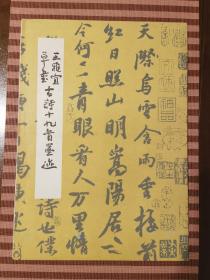 王雅宜
草書
古詩十九首墨迹
天際烏雲含雨重樓前
紅日照山明嵩陽居士
今何在青眼看人萬里情
詩也僕